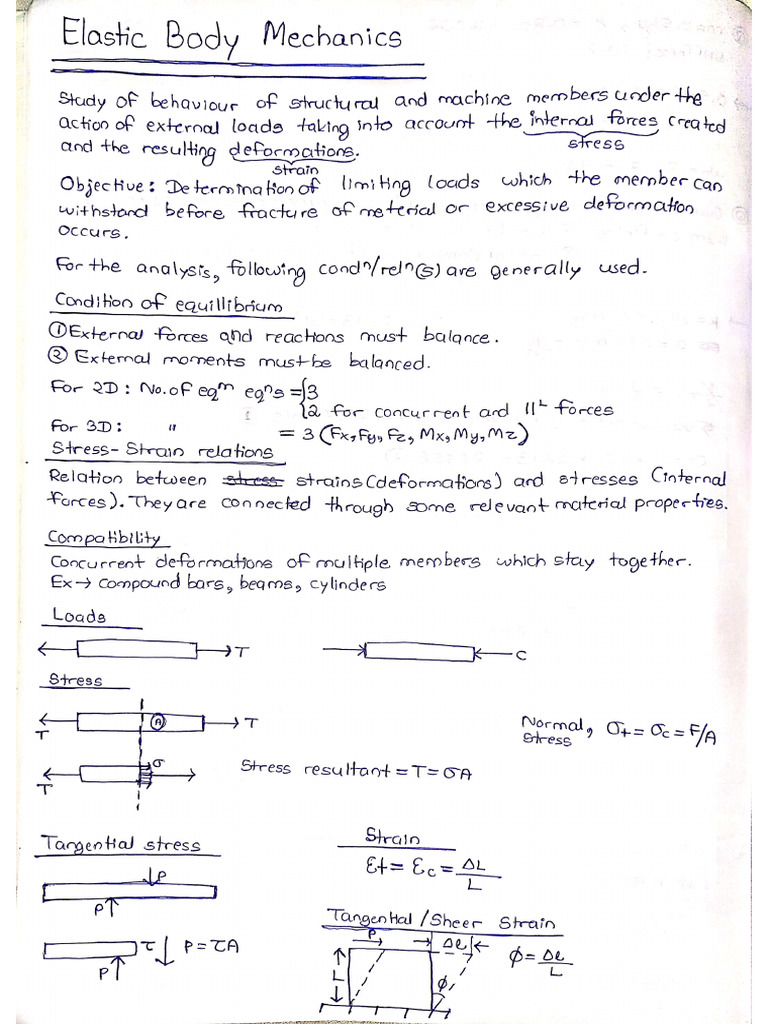 Elastic Body Mechanics
Study of behaviour of structural and machine members under the
action of external loads taking into account the internal forces created
stress
and the resulting deformations.
strain
Objective: Determination of limiting loads which the member can
withstand before fracture of meterial or excessive deformation
occurs.
For the analysis, following condⁿ/relⁿ(s) are generally used.
Condition of equillibrium
① External forces and reactions must balance.
② External moments must be balanced.
For 2D: No. of eqᵐ eqⁿs = {3
{2 for concurrent and 11ᴸ forces
For 3D: " = 3 (Fx, Fy, Fz, Mx, My, Mz)
Stress-Strain relations
Relation between stress strains (deformations) and stresses (internal
forces). They are connected through some relevant material properties.
Compatibility
Concurrent deformations of multiple members which stay together.
Ex → compound bars, beams, cylinders
Loads
T C
Stress
T A T
Normal, σt = σc = F/A
Stress
T σ
Stress resultant = T = σA
Tangential stress
P
P
τ P = τA
P
Strain
Et = Ec = ΔL/L
Tangential/Sheer Strain
P Δl
L φ
φ = Δl/L